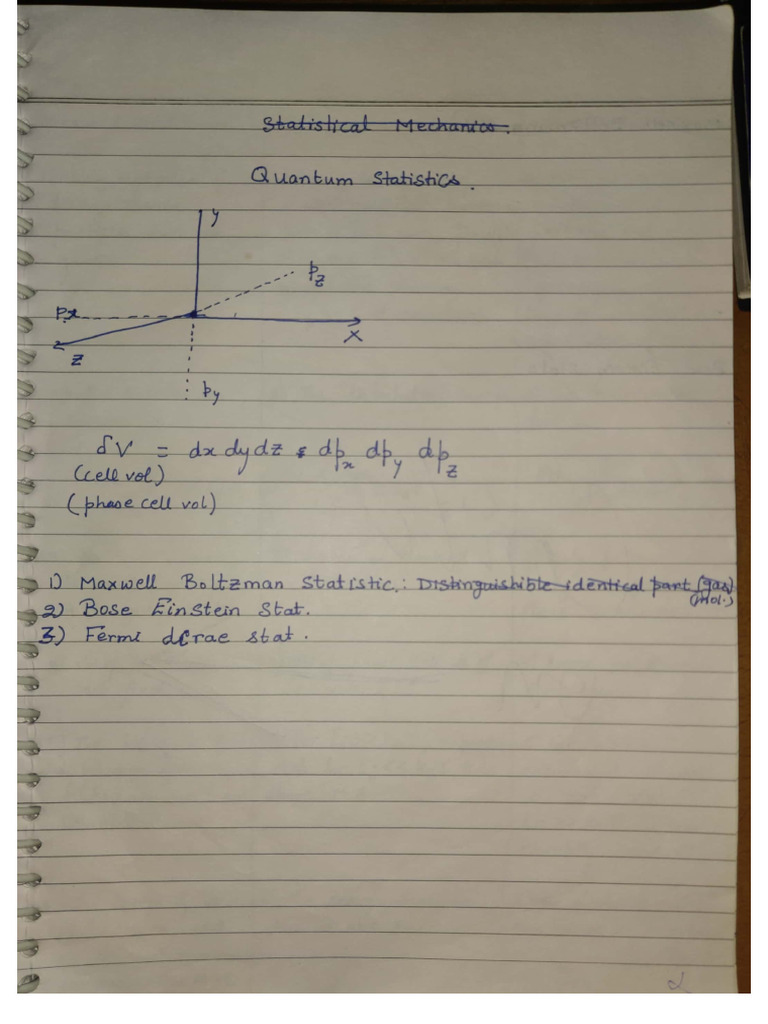 Statistical Mechanics.
Quantum Statistics.
y
pz
px
x
z
py
δV = dx dy dz dpx dpy dpz
(cell vol)
(phase cell vol)
1) Maxwell Boltzman Statistic.: Distinguishible identical part (gas)
(mol.)
2) Bose Einstein Stat.
3) Fermi dirae stat.